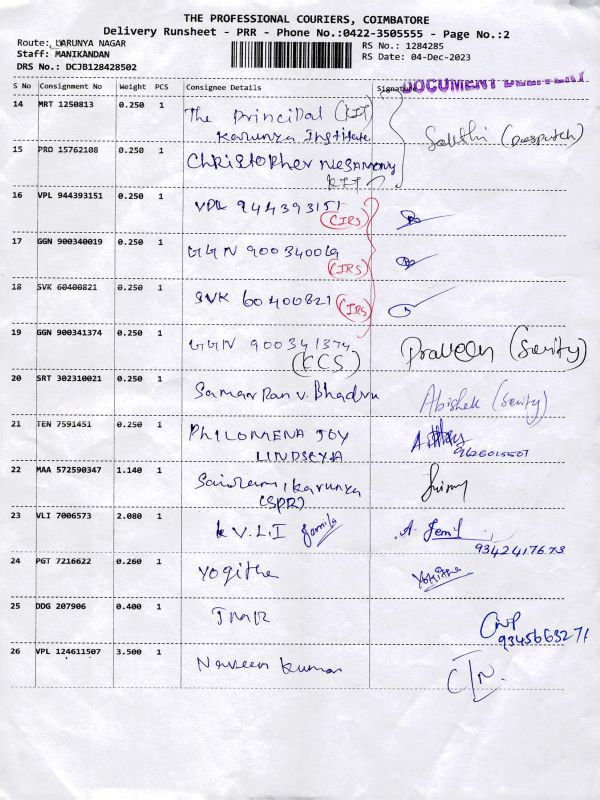 THE PROFESSIONAL COURIERS, COIMBATORE
Delivery Runsheet - PRR - Phone No.:0422-3505555 - Page No.:2
Route: KARUNYA NAGAR
RS No.: 1284285
Staff: MANIKANDAN
RS Date: 04-Dec-2023
DRS No.: DCJB128428502
DOCUMENT DELIVERY
S No Consignment No Weight PCS Consignee Details Signature
14 MRT 1250813 0.250 1 The Principal (KIT)
Karunya Institute
Sakthi (Despatch)
15 PRO 15762108 0.250 1 Christopher
KIT
16 VPL 944393151 0.250 1 VPL 944393151
(CIRS)
17 GGN 900340019 0.250 1 GGN 900340019
(IRS)
18 SVK 60400821 0.250 1 SVK 60400821 (IRS)
19 GGN 900341374 0.250 1 GGN 900341374
(KCS)
Praveen (Surity)
20 SRT 302310021 0.250 1 Samarpan v. Bhadru Abishek (Surity)
21 TEN 7591451 0.250 1 PHILOMENA JOY
LINDSEYIA
22 MAA 572590347 1.140 1 Sairam, Karunya
(SPR)
23 VLI 7006573 2.080 1 K V.L.I Jamila A. Jemi
9342417673
24 PGT 7216622 0.260 1 Yogitha Yokitha
25 DDG 207906 0.400 1
9345663271
26 VPL 124611507 3.500 1 Naveen Kumar